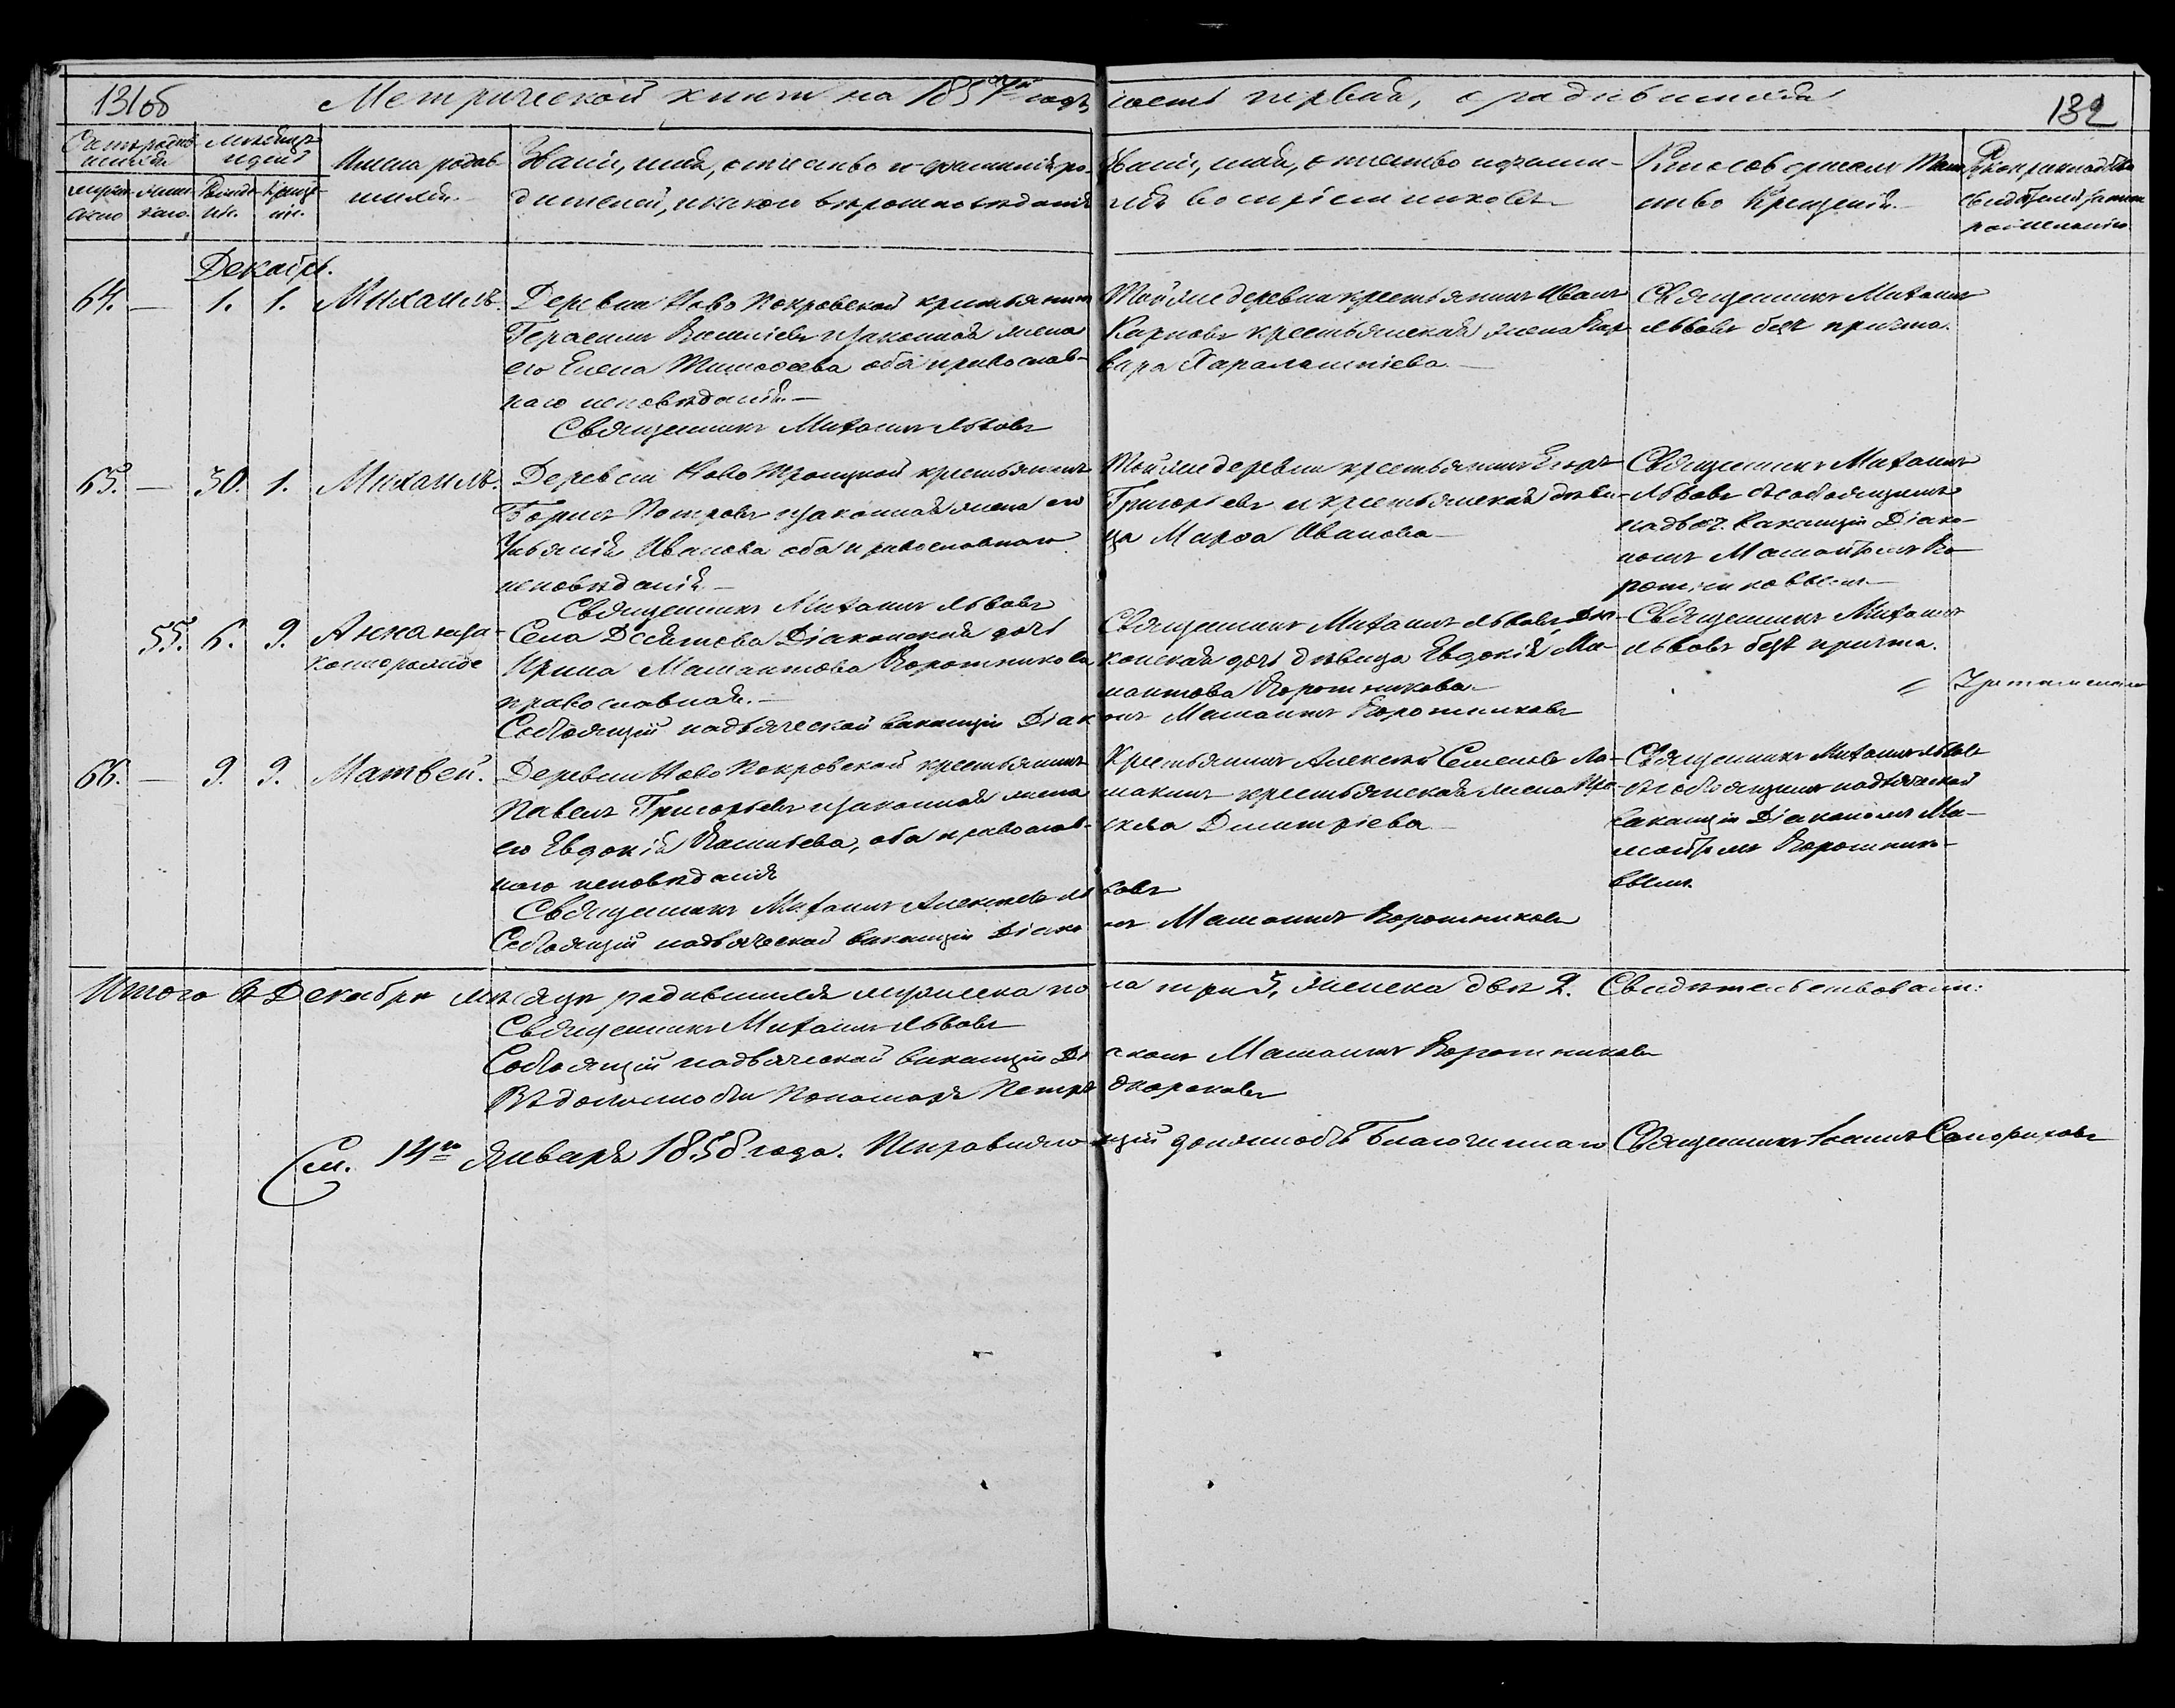 131об
Метрической книги на 1857й годъ часть первая, о родившихся
132
Счетъ родив-
шихся
Мѣсяцъ
и день
Имена родив-
шихся.
Званіе, имя, отчество и фамилія ро-
дителей, и какого вѣроисповѣданія
Званіе, имя, отчество и фами-
лія воспріемниковъ
Кто совершалъ Таин-
ство Крещенія.
Рукоприкладство
свидѣтелей записи
по желанію
мужес-
каго
женс-
каго.
Рожде-
нія.
Креще-
нія.
Декабрь.
64. — 1. 1. Михаилъ.
Деревни Ново Покровской крестьянинъ
Герасимъ Васильевъ и законная жена
его Елена Тимофеева оба православ-
наго исповѣданія. —
Священникъ Михаилъ Львовъ
Той же деревни крестьянинъ Иванъ
Карповъ крестьянская жена Вар-
вара Харалампіева. —
Священникъ Михаилъ
Львовъ безъ причта.
65. — 30. 1. Михаилъ.
Деревни Ново Троицкой крестьянинъ
Борисъ Петровъ и законная жена его
Ульянія Иванова оба православнаго
исповѣданія. —
Священникъ Михаилъ Львовъ
Той же деревни крестьянинъ Егоръ
Григорьевъ и крестьянская дѣви-
ца Марфа Иванова —
Священникъ Михаилъ
Львовъ съ состоящимъ
на дьяч. вакансіи Діако-
номъ Мамантомъ Во-
ротниковымъ —
55. 6. 9. Анна неза-
коннорожде
Села Девятова Діаконская дочь
Ирина Мамантова Воротникова
православная. —
Состоящій на дьяческой вакансіи Діаконъ Мамантъ Воротниковъ
Священникъ Михаилъ Львовъ, Діа-
конская дочь дѣвица Евдокія Ма-
мантова Воротникова —
Священникъ Михаилъ
Львовъ безъ причта.
66. — 9. 9. Матвей.
Деревни Ново Покровской крестьянинъ
Павелъ Григорьевъ и законная жена
его Евдокія Васильева, оба православ-
наго исповѣданія
Священникъ Михаилъ Алексѣевъ Львовъ
Состоящій на дьяческой вакансіи Діаконъ Мамантъ Воротниковъ
Крестьянинъ Алексѣй Семеновъ Ло-
макинъ крестьянская жена
Димитріева
Священникъ Михаилъ Львовъ
съ состоящимъ на дьяческой
вакансіи Діакономъ Ма-
мантомъ Воротнико-
вымъ.
Итого въ Декабрѣ мѣсяцѣ родившихся мужеска пола три 3, женска двѣ 2. Свидѣтельствовали:
Священникъ Михаилъ Львовъ
Состоящій на дьяческой вакансіи Діаконъ Мамантъ Воротниковъ
Въ должности Пономаря Петръ
14го Января 1858 года. Исправляющій должность Благочиннаго Священникъ Іоаннъ